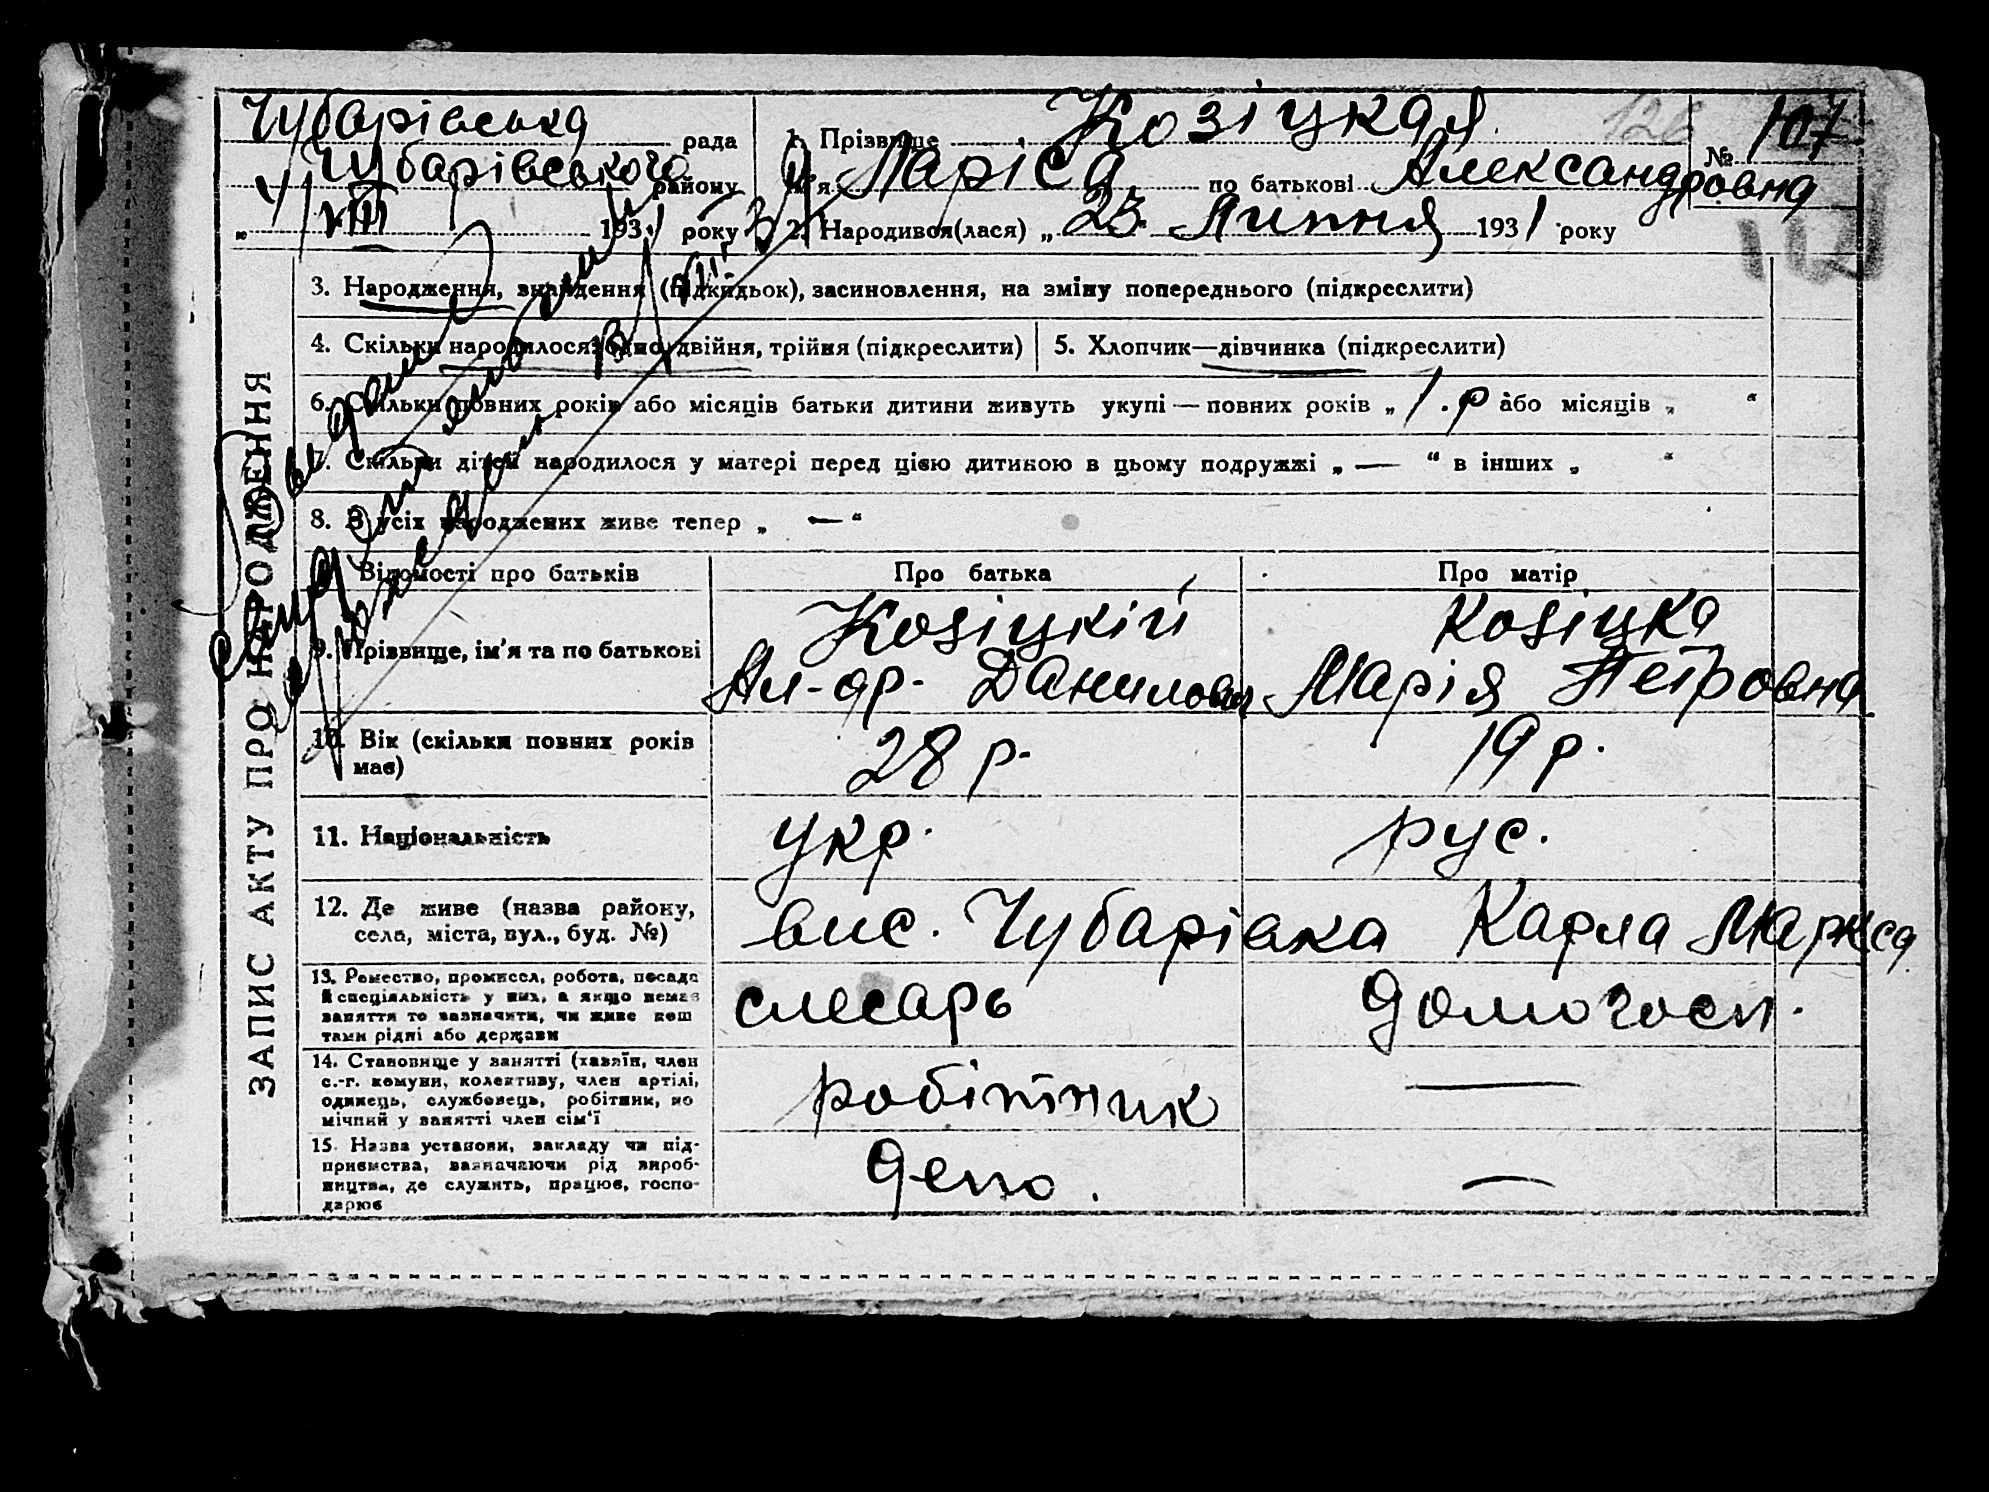 Чубарівська рада
Чубарівського району
VIII 1931 року
1. Прізвище Козіцкая
Ім'я Ларіса по батькові Александровна
№ 107
126
2. Народився(лася) „ 23 " Липня 1931 року
ЗАПИС АКТУ ПРО НАРОДЖЕННЯ
3. Народження, знайдення (підкидьок), засиновлення, на зміну попереднього (підкреслити)
4. Скільки народилося: одно, двійня, трійня (підкреслити)
5. Хлопчик—дівчинка (підкреслити)
6. Скільки повних років або місяців батьки дитини живуть укупі — повних років „ 1. р або місяців „ “
7. Скільки дітей народилося у матері перед цією дитиною в цьому подружжі „ — “ в інших „ “
8. З усіх народжених живе тепер „ — “
Відомості про батьків
Про батька
Про матір
9. Прізвище, ім'я та по батькові
Козіцкій
Ал-др. Данилович
Козіцка
Марія Петровна
10. Вік (скільки повних років має)
28 р.
19 р.
11. Національність
укр.
рус.
12. Де живе (назва району, села, міста, вул., буд. №)
вис. Чубарівка Карла Маркса
13. Ремество, промисел, робота, посада
й спеціяльність у них, а якщо немає
заняття то зазначити, чи живе кош
тами рідні або держави
слесарь
домогосп.
14. Становище у занятті (хазяїн, член
с.-г. комуни, колективу, член артілі,
одинець, службовець, робітник, по
мічний у занятті член сім'ї
робітник
—
15. Назва установи, закладу чи під-
приємства, зазначаючи рід вироб-
ництва, де служить, працює, госпо-
дарює
депо.
—